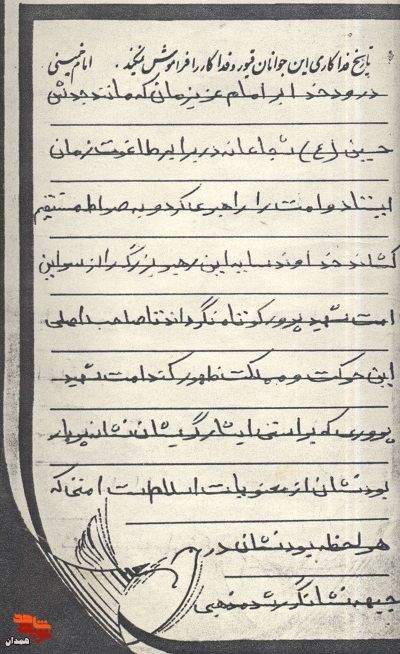 تاریخ فداکاری این جوانان غیور و فداکار را فراموش نمیکند. امام خمینی
درود خدا بر امام عزیز زمان که مانند جدش
حسین (ع) شجاعانه در برابر طاغوت زمان
ایستاد و امت را رهبری کرد و به صراط مستقیم
کشاند خداوند سایه این رهبر بزرگ را از سر این
امت شهید پرور کوتاه نگرداند تا صاحب اصلی
این حرکت و مملکت ظهور کند امت شهید
پروری که براستی ایثارگریشان نشانه پربار
بودنشان از معنویات اسلام است امتی که
هر لحظه بودنشان در
جبهه نشانگر رشد مذهبی
شاهد
همدان